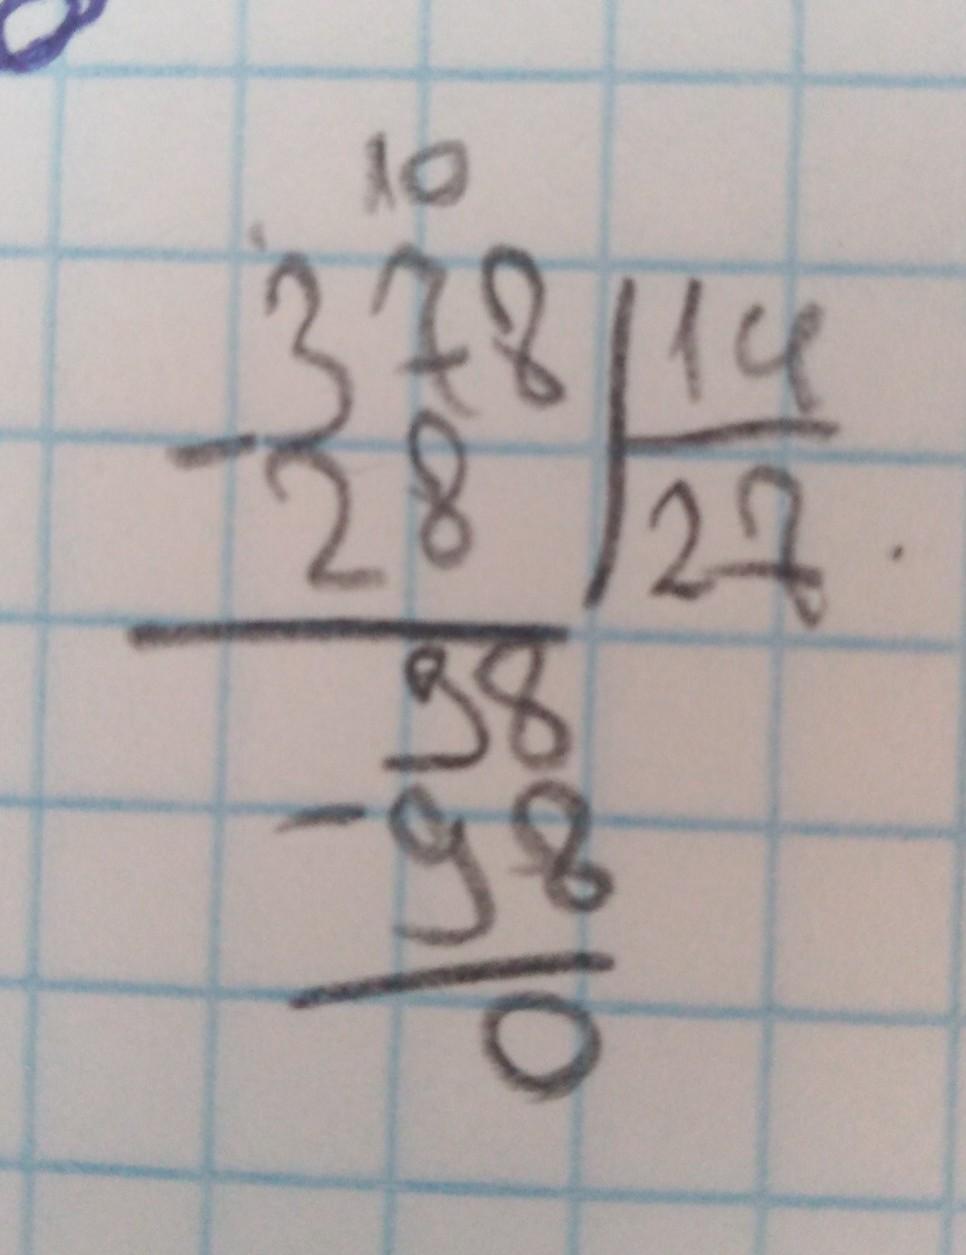 10
378 | 14
- 28 | 27 .
98
- 98
0